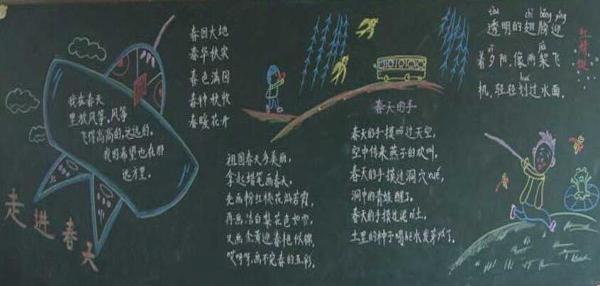 走进春天
我在春天
里放风筝,风筝
飞得高高的,远远的。
我的希望也在那
远方里。
春回大地
春华秋实
春色满园
春种秋收
春暖花开
祖国春天多美丽,
拿起蜡笔画春天。
先画粉红桃花
再画洁白梨花
又画金黄迎春
哎呀呀,画不完春的五彩。
春天的手
春天的手摸过天空,
空中传来燕子的欢叫。
春天的手摸过洞穴xué,
洞中的青蛙醒了。
春天的手摸过泥土,
土里的种子喝水发芽了。
红蜻蜓
chì bǎng yíng
透明的翅膀迎
着夕阳,像雨架飞
机,轻轻划过水面。